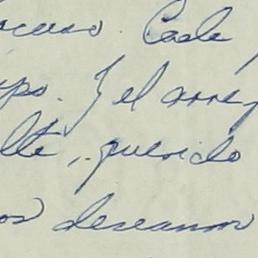 ocuso. Cada
ipo. Y el arreg
lte, querido
os deseamos